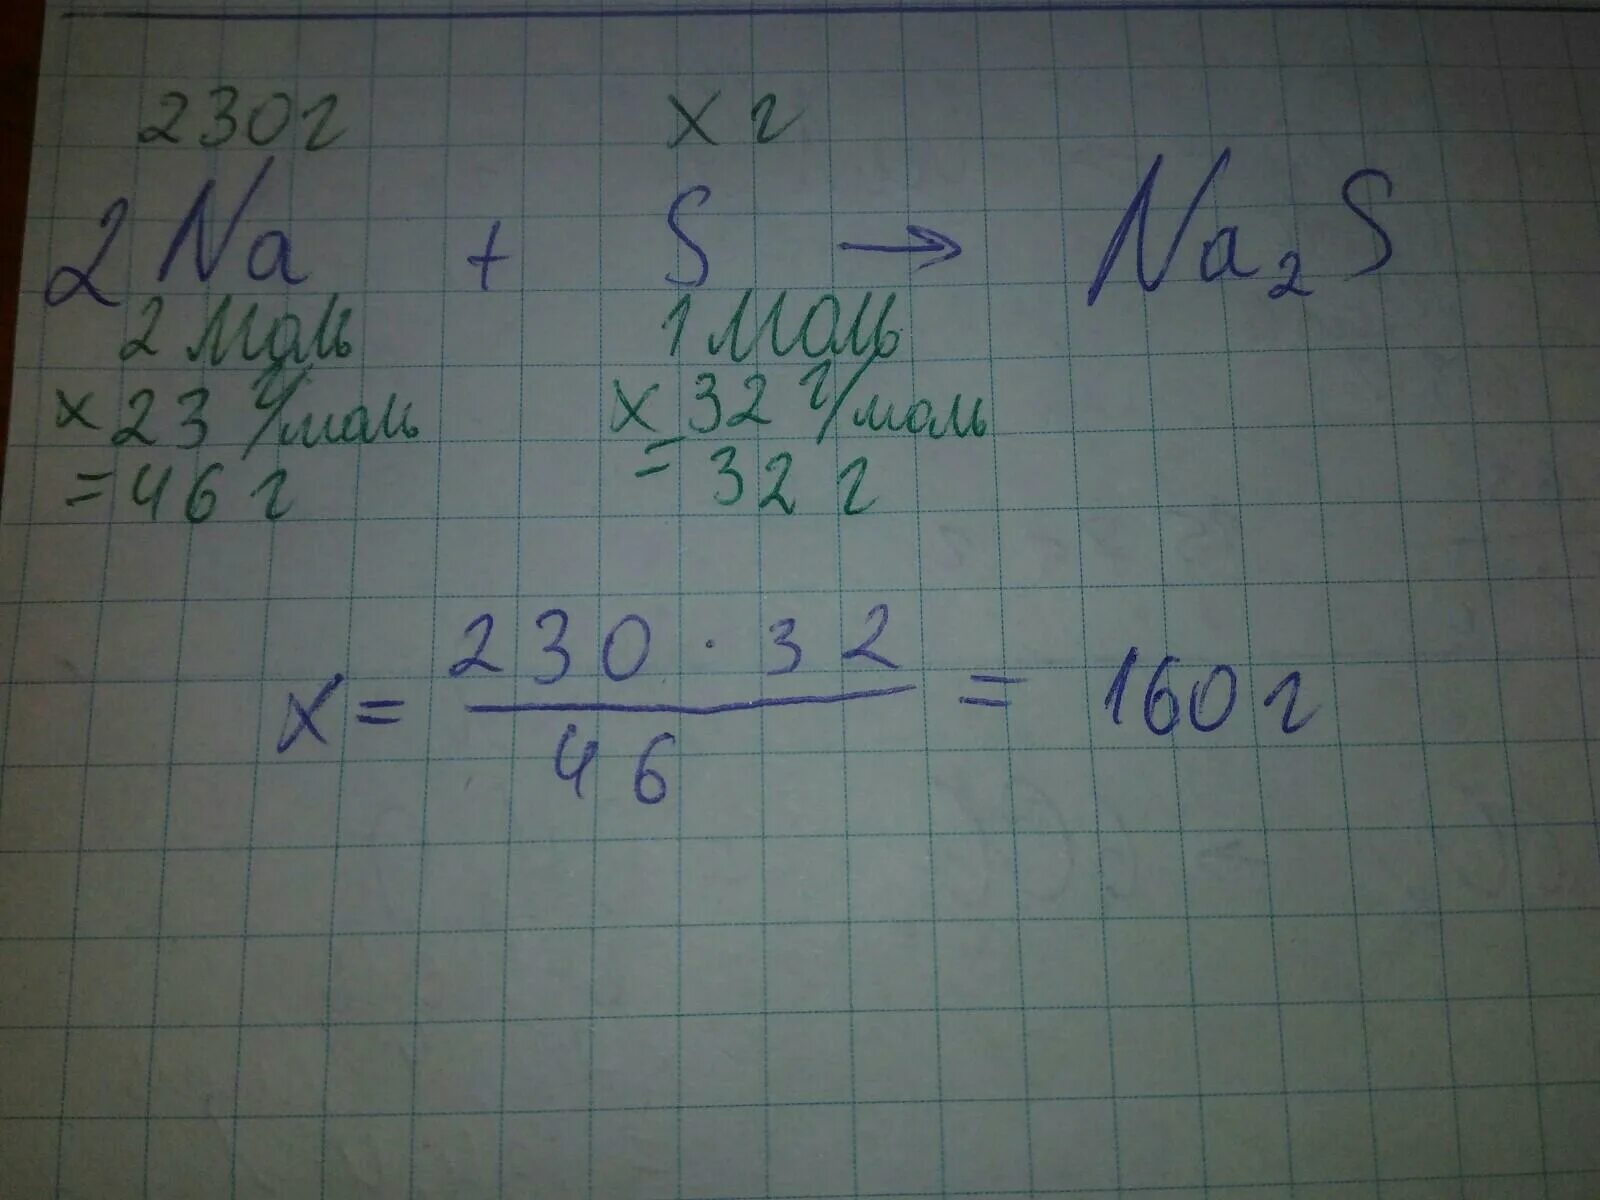 230г x г
2Na + S → Na₂S
2 моль 1 моль
x 23 г/моль x 32 г/моль
= 46 г = 32 г
x = 230 · 32 / 46 = 160 г